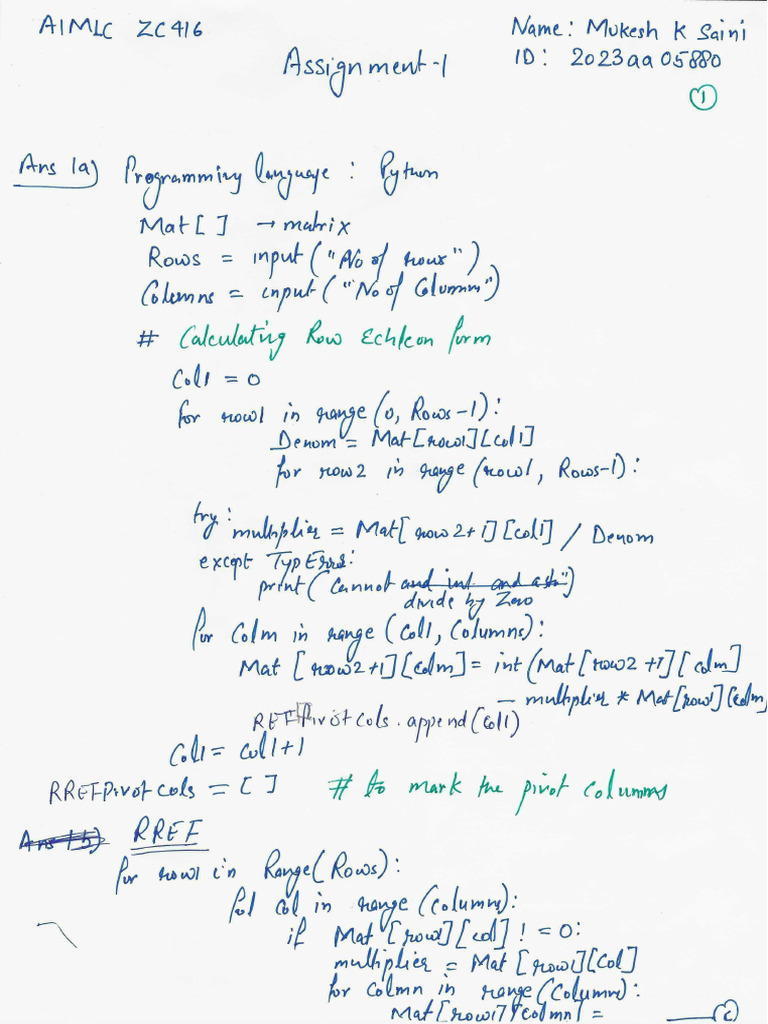 AIMLC ZC416
Name: Mukesh K Saini
ID: 2023aa05880
Assignment-1
1
Ans 1a) Programming language : Python
Mat [ ] → matrix
Rows = input ("No of rows")
Columns = input ("No of Columns")
# Calculating Row Echleon form
Col1 = 0
for row1 in range (0, Rows-1):
Denom = Mat[row1][col1]
for row2 in range (row1, Rows-1):
try:
multiplier = Mat[row2+1][col1] / Denom
except TypError:
print ("Cannot and int and a str")
divide by Zero
for Colm in range (Col1, Columns):
Mat [row2+1][colm] = int (Mat [row2+1][colm]
- multiplier * Mat[row1][colm]
REFPivotcols.append(Col1)
Col1 = col1+1
RREFPivotcols = [ ] # to mark the pivot columns
Ans 1b) RREF
for row1 in Range(Rows):
for col in range (columns):
if Mat [row1][col] != 0:
multiplier = Mat [row1][Col]
for colmn in range(Columns):
Mat[row1][colmn] =
2